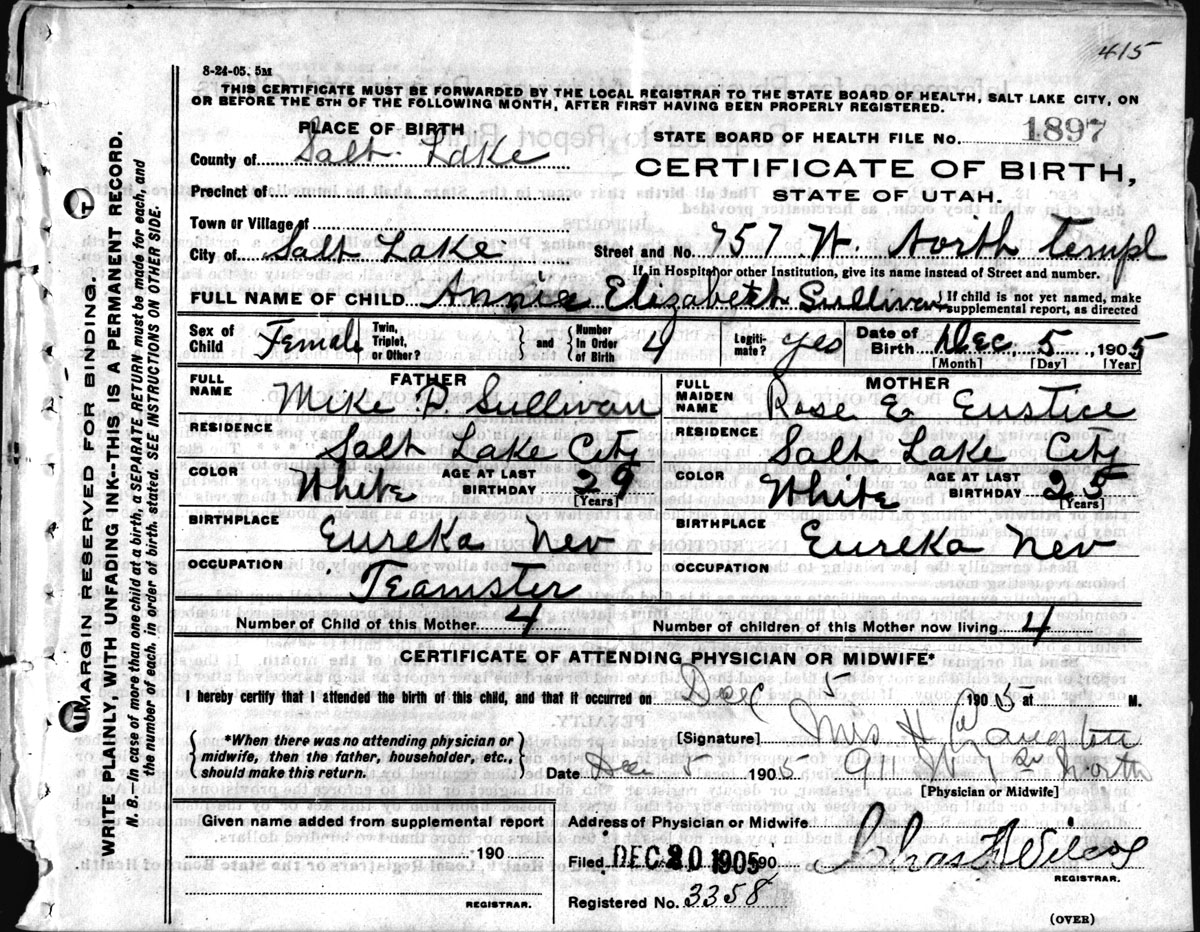 415
8-24-05. 5M
THIS CERTIFICATE MUST BE FORWARDED BY THE LOCAL REGISTRAR TO THE STATE BOARD OF HEALTH, SALT LAKE CITY, ON
OR BEFORE THE 5TH OF THE FOLLOWING MONTH, AFTER FIRST HAVING BEEN PROPERLY REGISTERED.
PLACE OF BIRTH
STATE BOARD OF HEALTH FILE No. 1897
County of Salt Lake
CERTIFICATE OF BIRTH,
Precinct of
STATE OF UTAH.
Town or Village of
City of Salt Lake
Street and No. 757 W. North Templ
If in Hospital or other Institution, give its name instead of Street and number.
FULL NAME OF CHILD Annie Elizabeth Sullivan
If child is not yet named, make
supplemental report, as directed
Sex of Child Female
Twin, Triplet, or Other?
and
Number in Order of Birth 4
Legiti-mate? yes
Date of Birth Dec, 5, 1905
[Month] [Day] [Year]
FATHER
FULL NAME Mike P. Sullivan
RESIDENCE Salt Lake City
COLOR White
AGE AT LAST BIRTHDAY 29
[Years]
BIRTHPLACE Eureka Nev
OCCUPATION Teamster
MOTHER
FULL MAIDEN NAME Rose E Eustice
RESIDENCE Salt Lake City
COLOR White
AGE AT LAST BIRTHDAY 25
[Years]
BIRTHPLACE Eureka Nev
OCCUPATION
Number of Child of this Mother 4
Number of children of this Mother now living 4
CERTIFICATE OF ATTENDING PHYSICIAN OR MIDWIFE*
I hereby certify that I attended the birth of this child, and that it occurred on Dec 5 1905 at M.
*When there was no attending physician or
midwife, then the father, householder, etc.,
should make this return.
[Signature] Mrs H
Date Dec 5 1905
North
[Physician or Midwife]
Given name added from supplemental report
190
REGISTRAR.
Address of Physician or Midwife
Filed DEC 30 1905 190
Wilcox
REGISTRAR.
Registered No. 3358
(OVER)
MARGIN RESERVED FOR BINDING.
WRITE PLAINLY, WITH UNFADING INK--THIS IS A PERMANENT RECORD.
N. B.—In case of more than one child at a birth, a SEPARATE RETURN must be made for each, and
the number of each, in order of birth, stated. SEE INSTRUCTIONS ON OTHER SIDE.